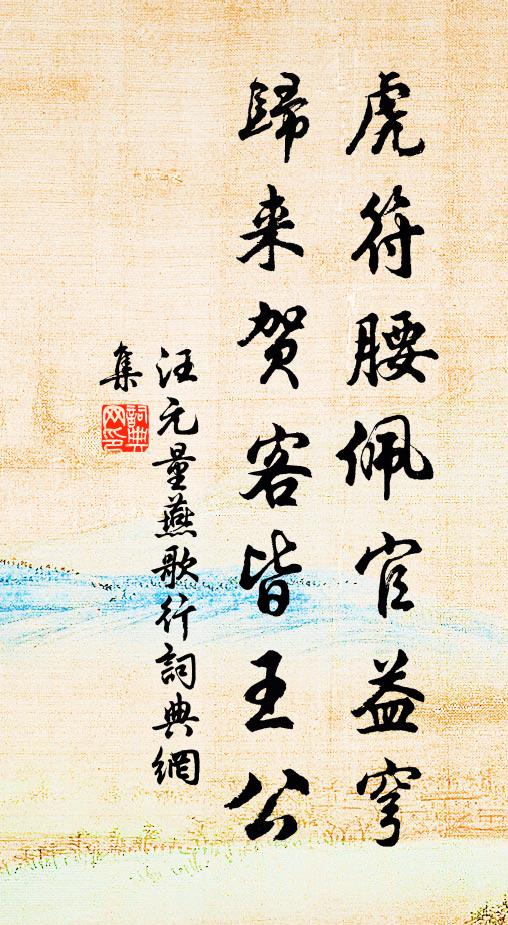 虎符腰佩官益穹
歸来贺客皆王公
汪元量燕歌行詞典網
集
詞典
网印